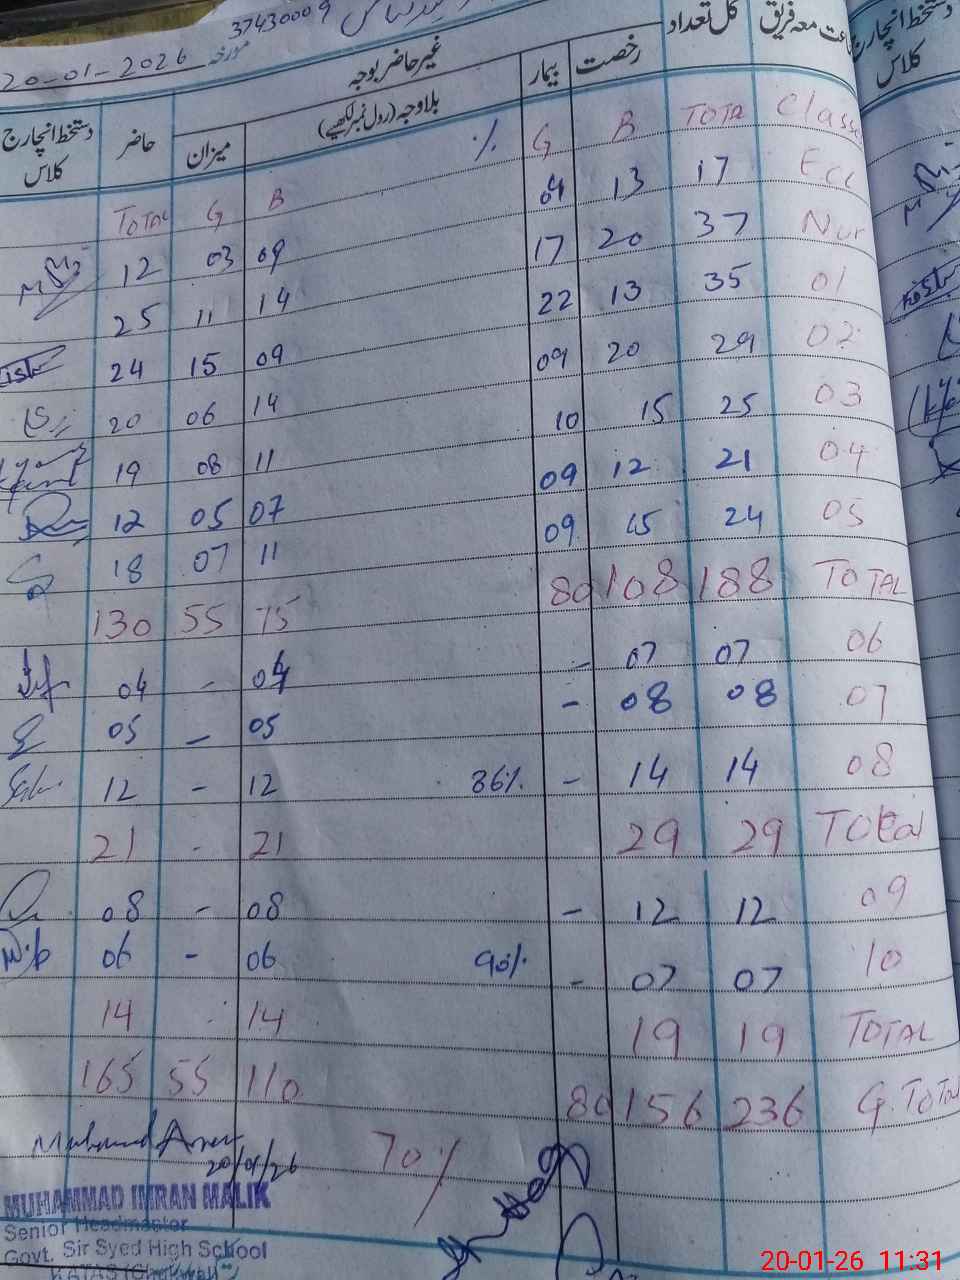 37430009
20-01-2026 مورخہ
دستخط انچارج کلاس | حاضر | غیر حاضر بوجہ | بیمار | رخصت | کل تعداد | جماعت معہ فریق | دستخط انچارج کلاس
میزان | بلاوجہ (رول نمبر لکھیے)
TOTAL G B % G B TOTAL Class
12 03 09 04 13 17 Ece
25 11 14 17 20 37 Nur
24 15 09 22 13 35 01
20 06 14 09 20 29 02
19 08 11 10 15 25 03
12 05 07 09 12 21 04
18 07 11 09 15 24 05
130 55 75 80 108 188 TOTAL
04 - 04 - 07 07 06
05 - 05 - 08 08 07
12 - 12 86% - 14 14 08
21 - 21 29 29 TOtal
08 - 08 - 12 12 09
06 - 06 90% - 07 07 10
14 - 14 19 19 TOTAL
165 55 110 80 156 236 G.TOTAL
20/01/26
70%
MUHAMMAD IMRAN MALIK
Senior Headmaster
Govt. Sir Syed High School
KATAS (Chakwal)
20-01-26 11:31